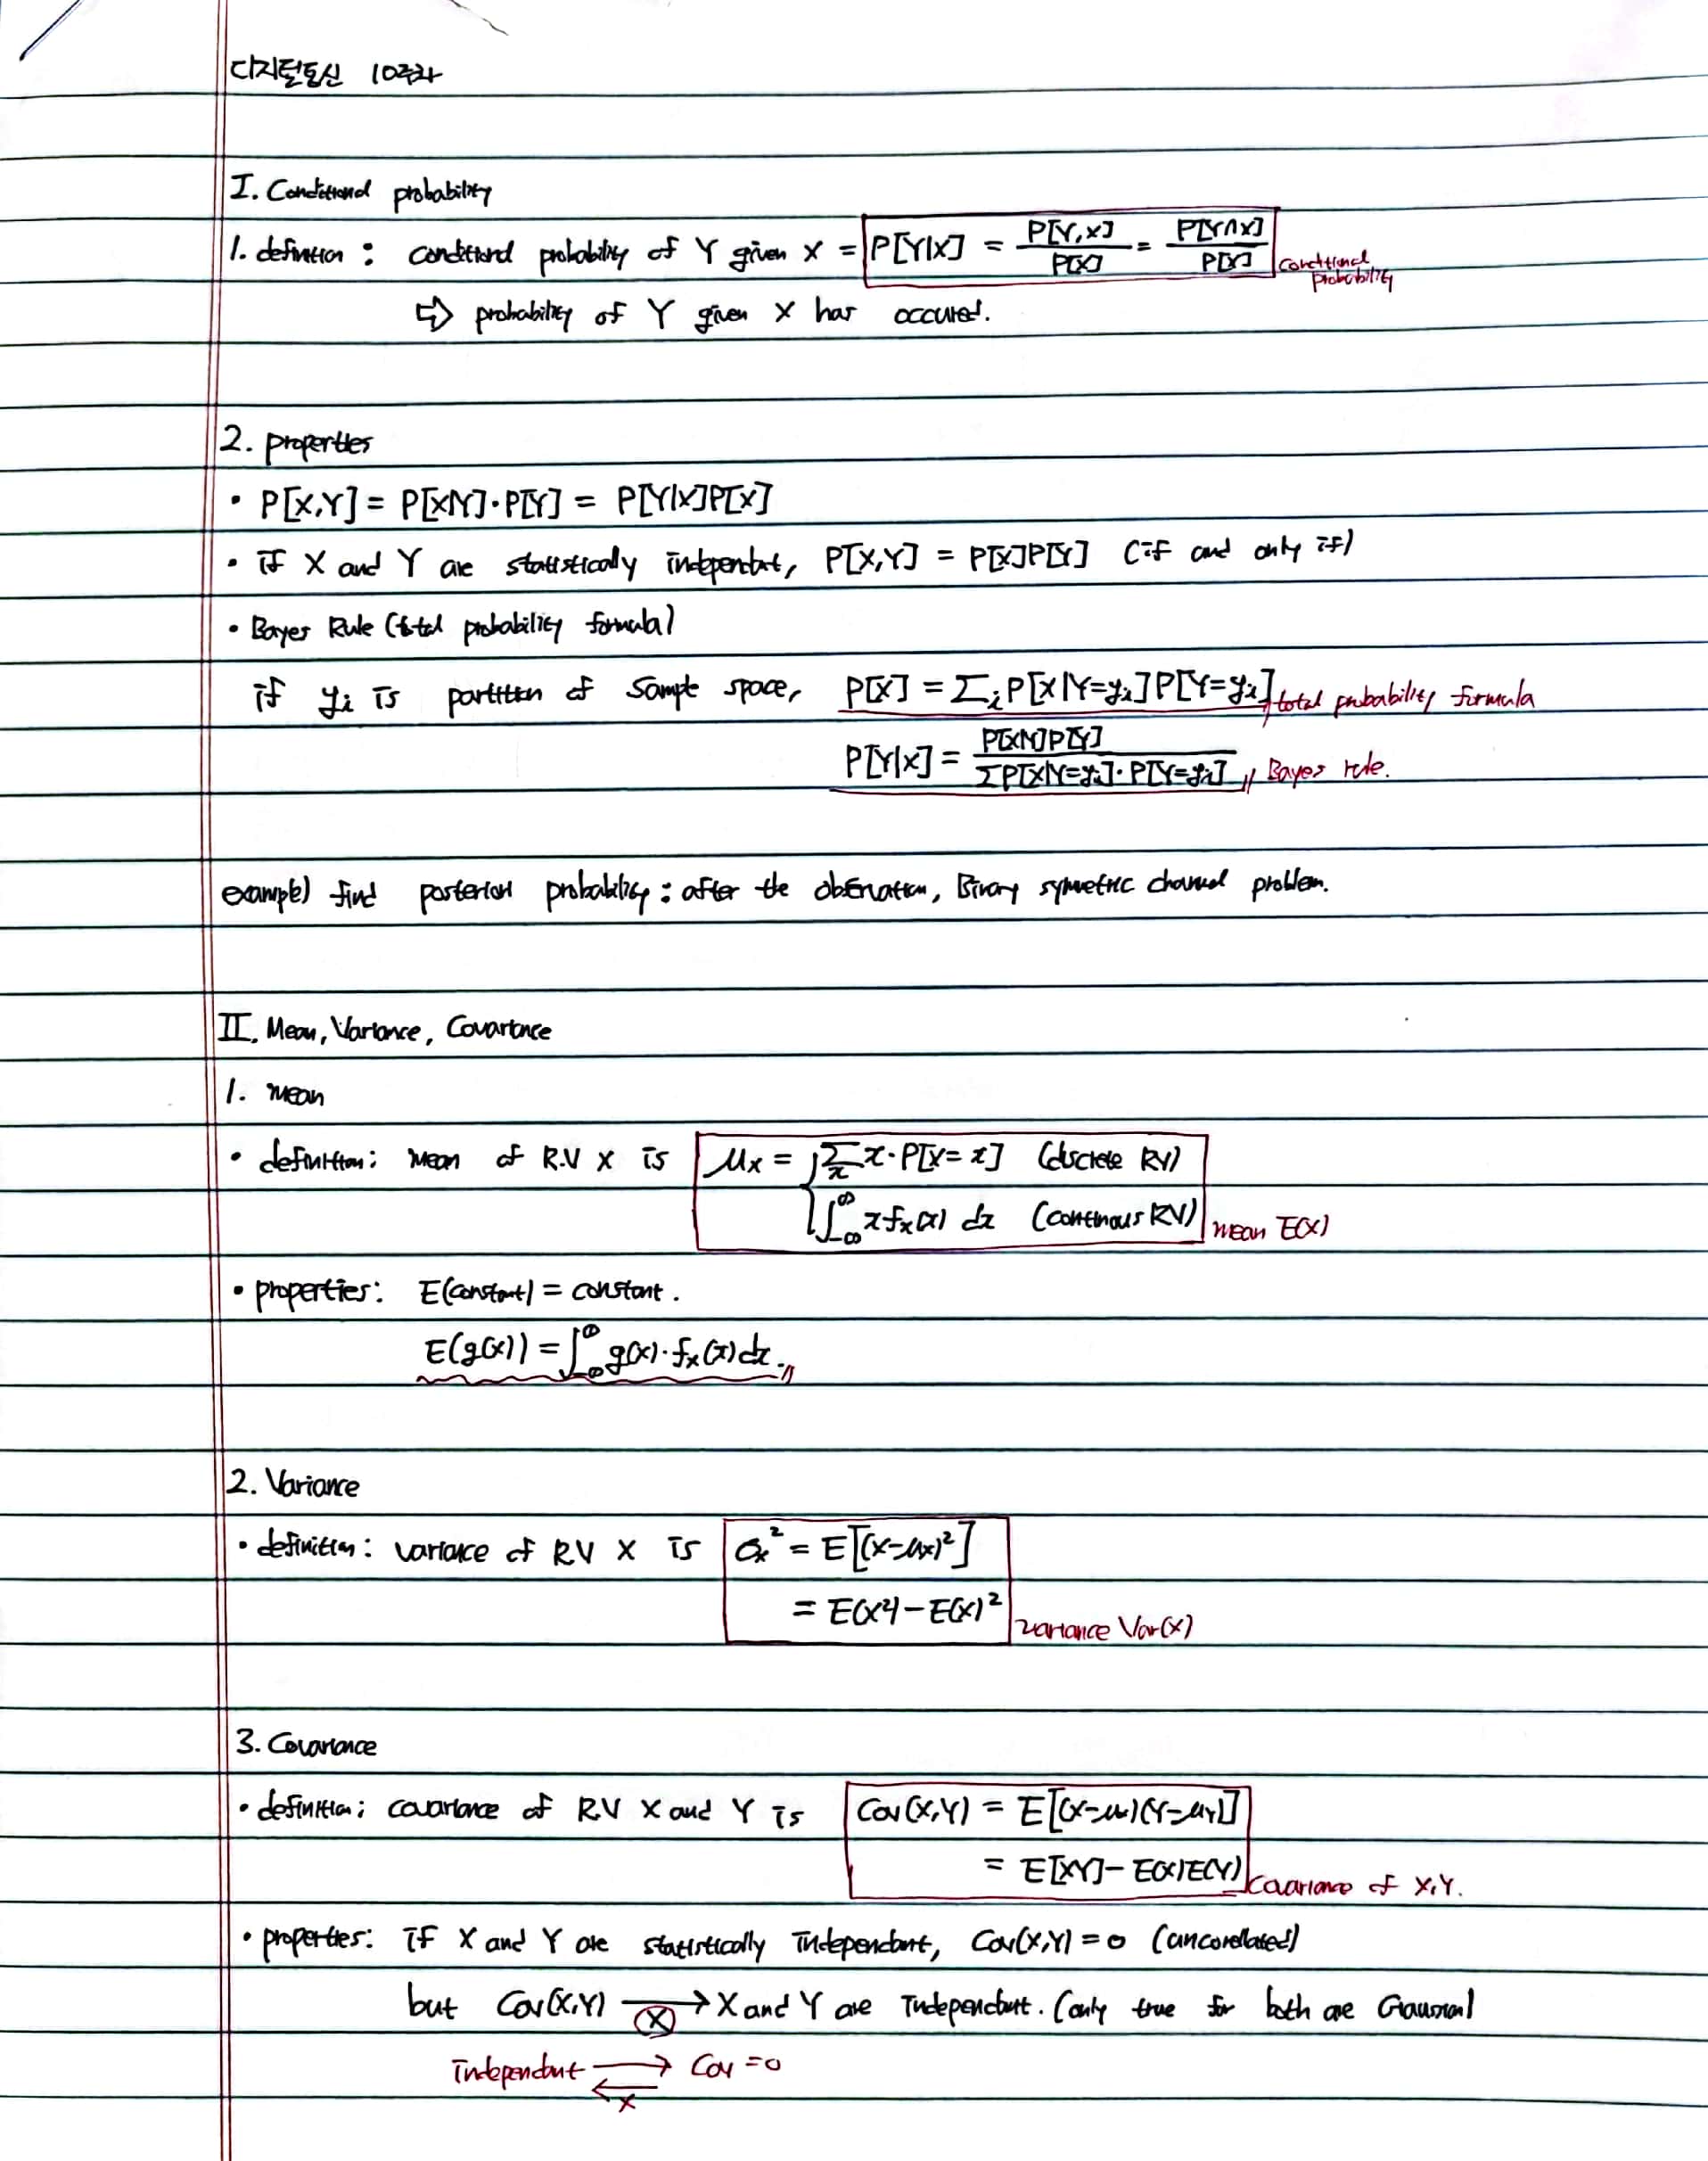 디지털통신 10주차
I. Conditional probability
1. definition : conditional probability of Y given X = P[Y|X] = P[Y,X]/P[X] = P[Y∩X]/P[X] conditional probability
⇨ probability of Y given X has occured.
2. properties
• P[X,Y] = P[X|Y]·P[Y] = P[Y|X]P[X]
• if X and Y are statistically independent, P[X,Y] = P[X]P[Y] (if and only if)
• Bayes Rule (total probability formula)
if yi is partition of sample space, P[X] = Σi P[X|Y=yi]P[Y=yi] total probability formula
P[Y|X] = P[X|Y]P[Y] / ΣP[X|Y=yi]·P[Y=yi] // Bayes rule.
example) find posterior probability : after the observation, Binary symmetric channel problem.
II. Mean, Variance, Covariance
1. mean
• definition: mean of R.V X is μx = { Σx x·P[X=x] (discrete RV)
∫_-∞^∞ x fx(x) dx (continous RV) mean E(X)
• properties: E(constant) = constant.
E(g(x)) = ∫_-∞^∞ g(x)·fx(x)dx. //
2. Variance
• definition: variance of RV X is σx² = E[(X-μx)²]
= E(X²) - E(X)² variance Var(X)
3. Covariance
• definition: covariance of RV X and Y is Cov(X,Y) = E[(X-μx)(Y-μY)]
= E[XY] - E(X)E(Y) covariance of X,Y.
• properties: if X and Y are statistically independent, Cov(X,Y)=0 (uncorrelated)
but Cov(X,Y) ⟶ X and Y are independent. (only true for both are Gaussian)
ⓧ
independent ⇄ Cov=0
x